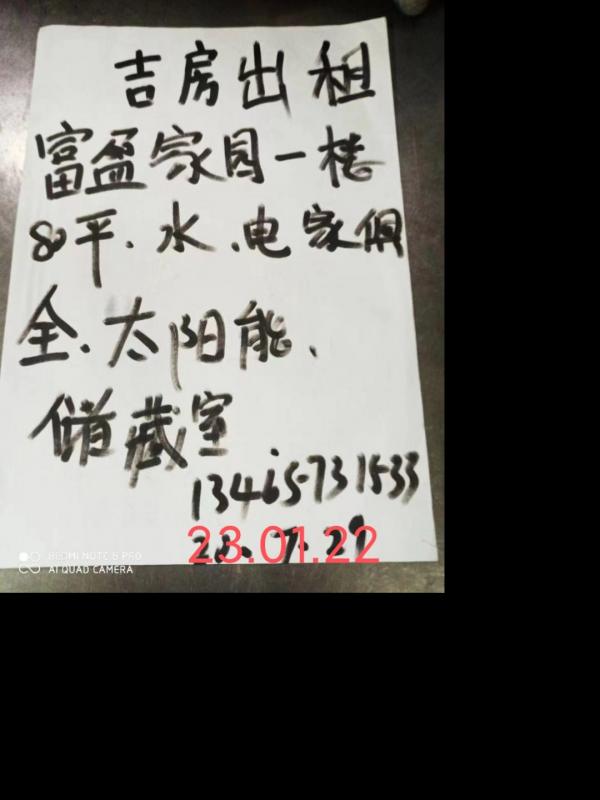 吉房出租
富盈家园一楼
80平、水、电家俱
全、太阳能、
储藏室
13465731533
23.01.22
REDMI NOTE 8 PRO
AI QUAD CAMERA